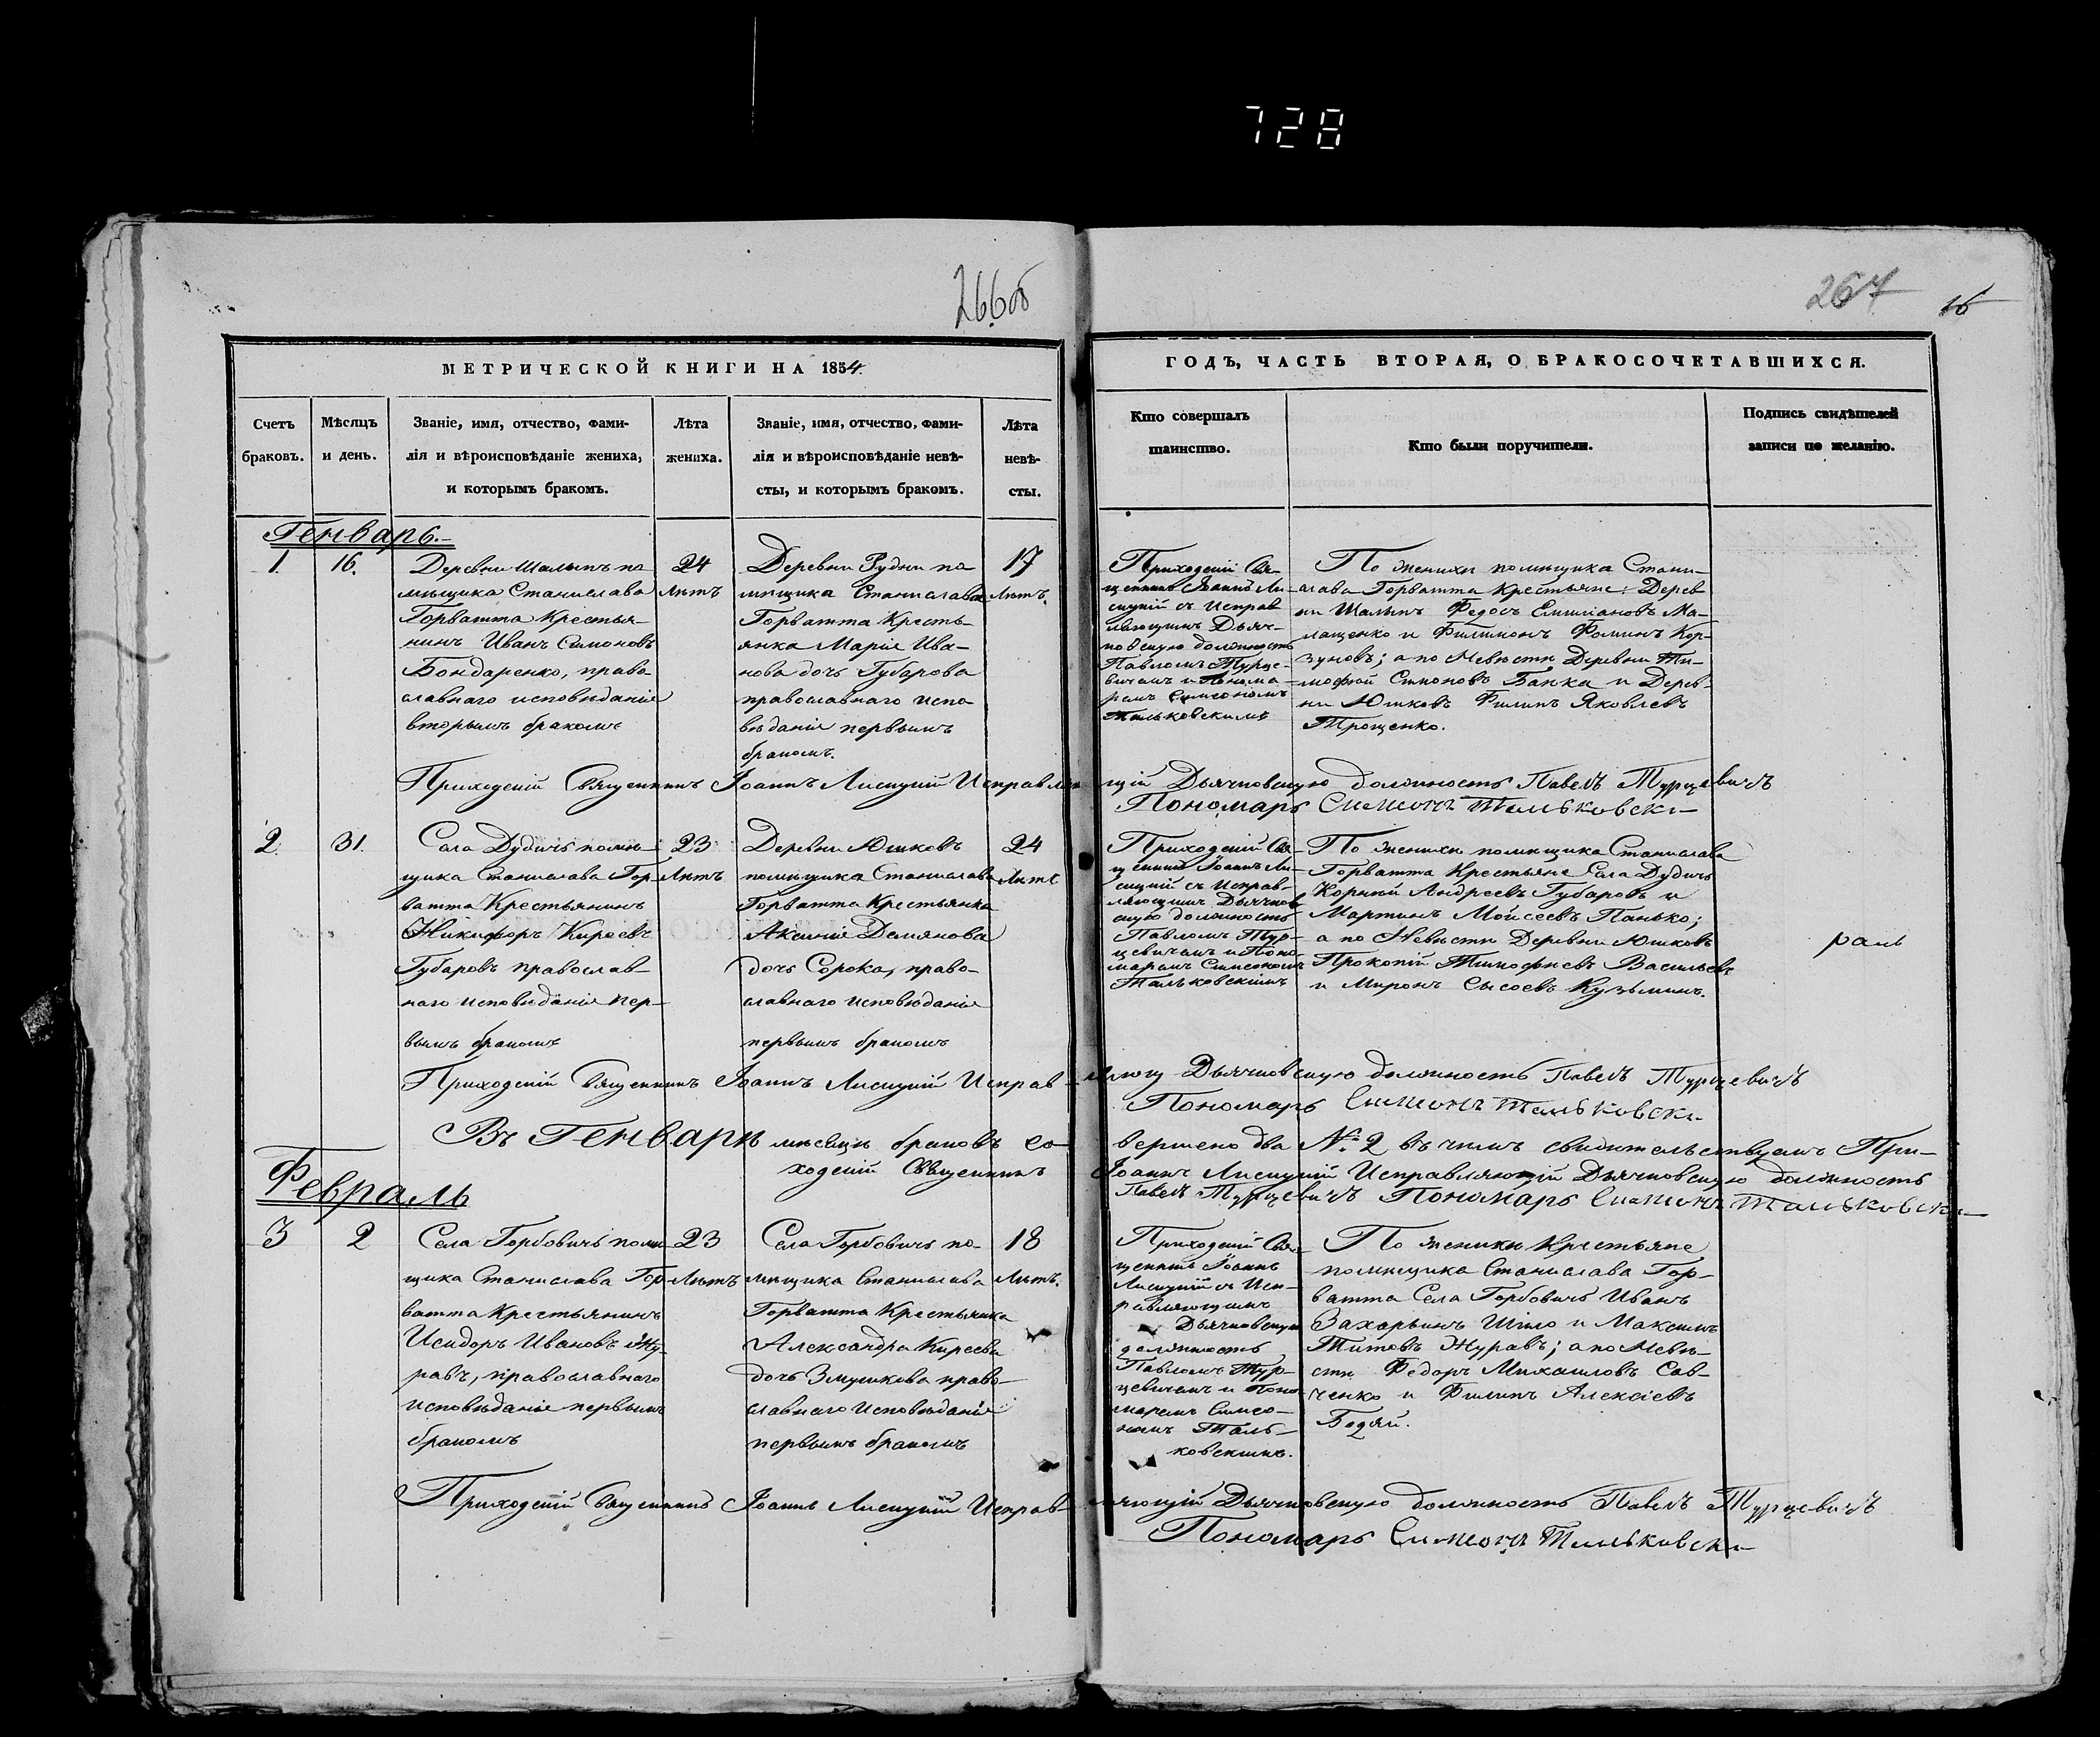 728
266об
267
16
МЕТРИЧЕСКОЙ КНИГИ НА 1854
ГОДЪ, ЧАСТЬ ВТОРАЯ, О БРАКОСОЧЕТАВШИХСЯ.
Счетъ
браковъ.
Мѣсяцъ
и день.
Званіе, имя, отчество, фами-
лія и вѣроисповѣданіе жениха,
и которымъ бракомъ.
Лѣта
жениха.
Званіе, имя, отчество, фами-
лія и вѣроисповѣданіе невѣ-
сты, и которымъ бракомъ.
Лѣта
невѣ-
сты.
Кто совершалъ
таинство.
Кто были поручители.
Подпись свидѣтелей
записи по желанію.
Генварь.
1.
16.
Деревни Шалыпъ по
мѣщика Станислава
Горватта Крестья-
нинъ Иванъ Симоновъ
Бондаренко, право-
славнаго исповѣданія
вторымъ бракомъ
24
Лѣтъ
Деревни Рудни по
мѣщика Станислава
Горватта Кресть-
янка Марія Ива-
нова дочь Губарова
православнаго испо-
вѣданія первымъ
бракомъ.
17
Лѣтъ.
Приходскій Свя-
щенникъ Іоаннъ Ли-
сицкій съ Исправ
ляющимъ Дьяч-
ковскую должность
Павломъ Турце-
вичемъ и Понома-
ремъ Симеономъ
Тальковскимъ
По женихи помѣщика Стани-
слава Горватта Крестьяне: Дерев
ни Шалыпъ Федосъ Емилiановъ Ма-
лащенко и Филимонъ Фоминъ Кор-
зуновъ; а по Невѣсти Деревни Ти-
мофей Симоновъ Банка и Дерев-
ни Юшковъ Филипъ Яковлевъ
Трощенко.
Приходскій Священникъ Іоаннъ Лисицкій Исправляю щій Дьячковскую должность Павелъ Турцевичъ
Пономарь Симеонъ Тальковски
2.
31.
Села Дудичъ помѣ-
щика Станислава Гор-
ватта Крестьянинъ
Никифоръ Киреевъ
Губаровъ православ-
наго исповѣданія пер-
вымъ бракомъ
23
Лѣтъ
Деревни Юшковъ
помѣщика Станислава
Горватта Крестьянка
Аксинія Демянова
дочь Сорока, право-
славнаго исповѣданія
первымъ бракомъ
24
Лѣтъ
Приходскій Свя-
щенникъ Іоаннъ Ли-
сицкій съ Исправ-
ляющимъ Дьячков
скую должность
Павломъ Тур-
цевичемъ и Поно-
маремъ Симеономъ
Тальковскимъ
По женихи помѣщика Станислава
Горватта Крестьяне Села Дудичъ
Корний Андреевъ Губаровъ и
Мартинъ Моисеевъ Панько;
а по Невѣсти Деревни Юшковъ
Прокопій Тимофеевъ Васильевъ
и Миронъ Сысоевъ Кузьминъ.
Приходскій Священникъ Іоаннъ Лисицкій Исправ- ляющ Дьячковскую должность Павелъ Турцевичъ
Пономарь Симеонъ Тальковски
Въ Генварѣ мѣсяцѣ браковъ со- вершено два № 2 въ чемъ свидѣтельствуемъ При-
ходскій Священникъ Іоаннъ Лисицкій Исправляющій Дьячковскую должность
Павелъ Турцевичъ Пономарь Симеонъ Тальковски
Февраль
3
2
Села Горбовичъ помѣ
щика Станислава Гор-
ватта Крестьянинъ
Исидоръ Ивановъ Жу-
равъ, православнаго
исповѣданія первымъ
бракомъ
23
Лѣтъ
Села Горбовичъ по-
мѣщика Станислава
Горватта Крестьянка
Александра Киреева
дочь Змушкова право-
славнаго исповѣданія
первымъ бракомъ
18
Лѣтъ.
Приходскій Свя-
щенникъ Іоаннъ
Лисицкій съ Исп-
равляющимъ
Дьячковскую
должность
Павломъ Тур-
цевичемъ и Поно-
маремъ Симео-
номъ Таль-
ковскимъ.
По женихи Крестьяне
помѣщика Станислава Гор-
ватта Села Горбовичъ Иванъ
Захарьинъ Шило и Максимъ
Титовъ Журавъ; а по Невѣ-
сти Федоръ Михаиловъ Сав-
ченко и Филипъ Алексіевъ
Бодяй.
Приходскій Священникъ Іоаннъ Лисицкій Исправ- ляющій Дьячковскую должность Павелъ Турцевичъ
Пономарь Симеонъ Тальковски